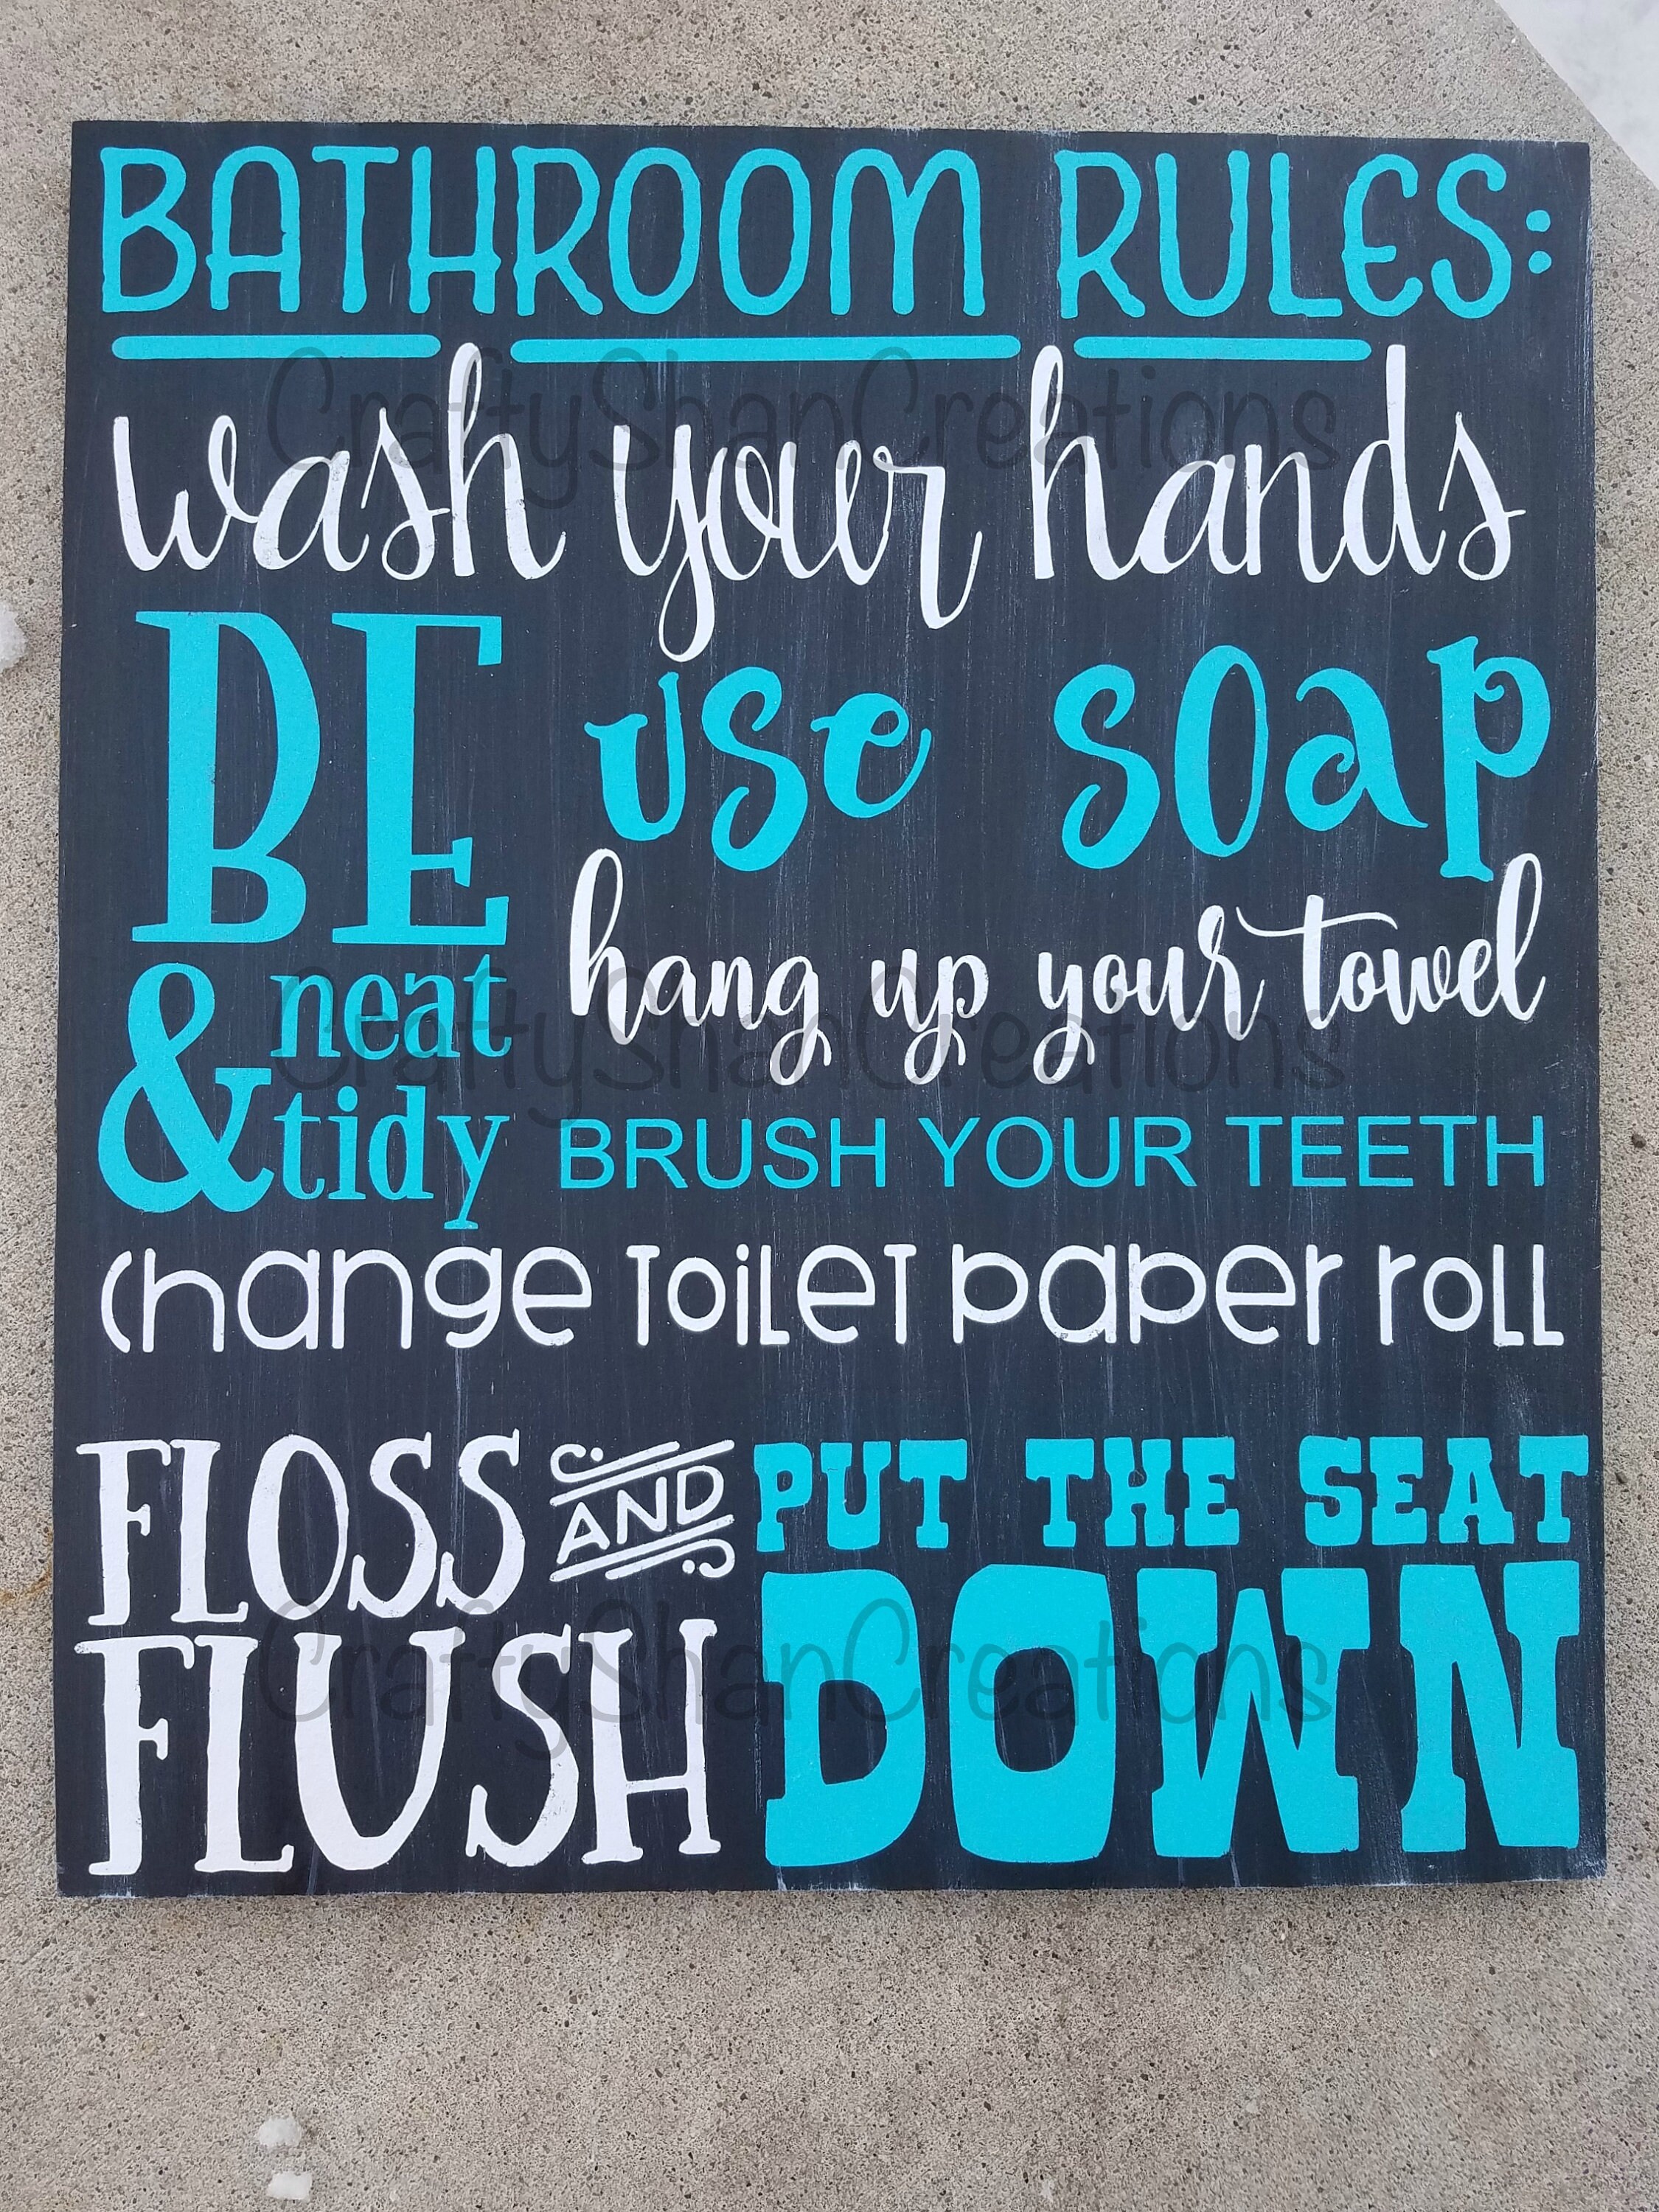 BATHROOM RULES:
wash your hands
BE
& neat
tidy
use soap
hang up your towel
BRUSH YOUR TEETH
change toilet paper roll
FLOSS AND
FLUSH
PUT THE SEAT
DOWN
CraftyShanCreations
CraftyShanCreations
CraftyShanCreations